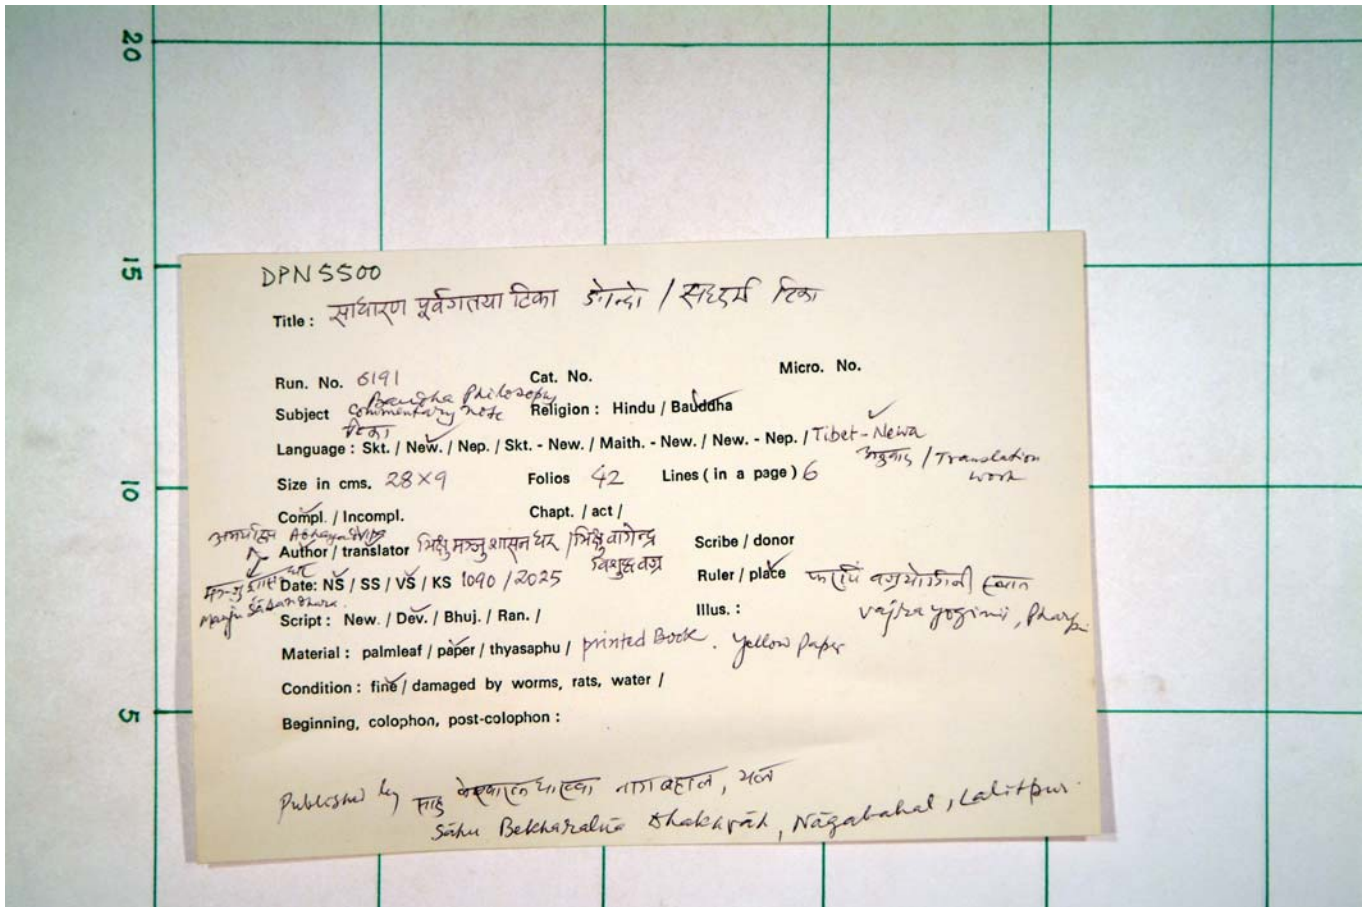 20
15
10
5
DPN 5500
Title : साधारण पूर्वगतया टिका ङोन्दो / सद्धर्म टिका
Run. No. 6191 Cat. No. Micro. No.
Baudha Philosopy
Subject Commentary note Religion : Hindu / Bauddha
टिका
Language : Skt. / New. / Nep. / Skt. - New. / Maith. - New. / New. - Nep. / Tibet - Newa
अनुवाद / Translation work
Size in cms. 28×9 Folios 42 Lines ( in a page ) 6
Compl. / Incompl. Chapt. / act /
Author / translator भिक्षु मञ्जु शासन धर / भिक्षु वागेन्द्र Scribe / donor
विशुद्ध वज्र
Date: NS / SS / VS / KS 1090 / 2025 Ruler / place वज्रयोगिनी स्थान
Vajrayogini, Pharpi
Script : New. / Dev. / Bhuj. / Ran. / Illus. :
Material : palmleaf / paper / thyasaphu / printed Book. Yellow Paper
Condition : fine / damaged by worms, rats, water /
Beginning, colophon, post-colophon :
Published by साहु नाग बहाल,
Sāhu Dhakhvāh, Nāgabahal, Lalitpur